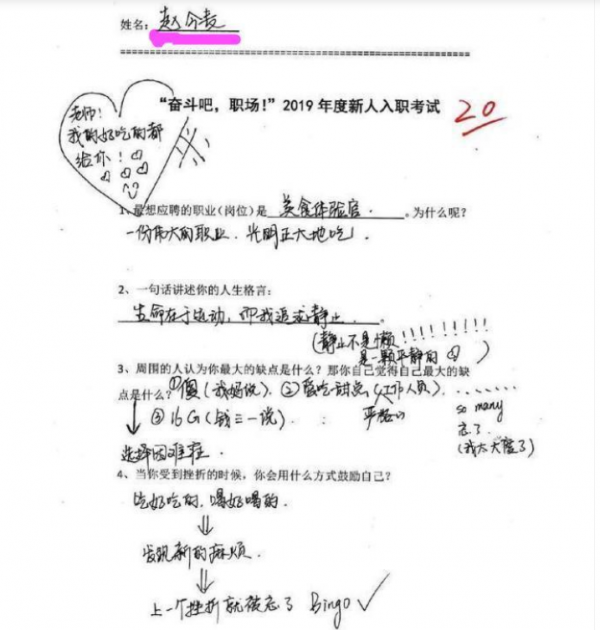 姓名：赵今麦
“奋斗吧，职场!”2019 年度新人入职考试
20
老师！
我的好吃的都
给你！
1、最想应聘的职业（岗位）是 美食体验官. 。为什么呢？
一份伟大的职业. 光明正大地吃！
2、一句话讲述你的人生格言：
生命在于运动，而我追求静止.
(静止不是懒!!!!!!!!!
是一颗平静的
3、周围的人认为你最大的缺点是什么？那你自己觉得自己最大的缺
点是什么？①傻(我妈说). ②爱吃甜点(工作人员).
so many
忘了
(我太天蝎了)
③16G(钱三一说).
选择困难症.
4、当你受到挫折的时候，你会用什么方式鼓励自己？
吃好吃的，喝好喝的.
发现新的麻烦.
上一个挫折就被忘了 Bingo✓